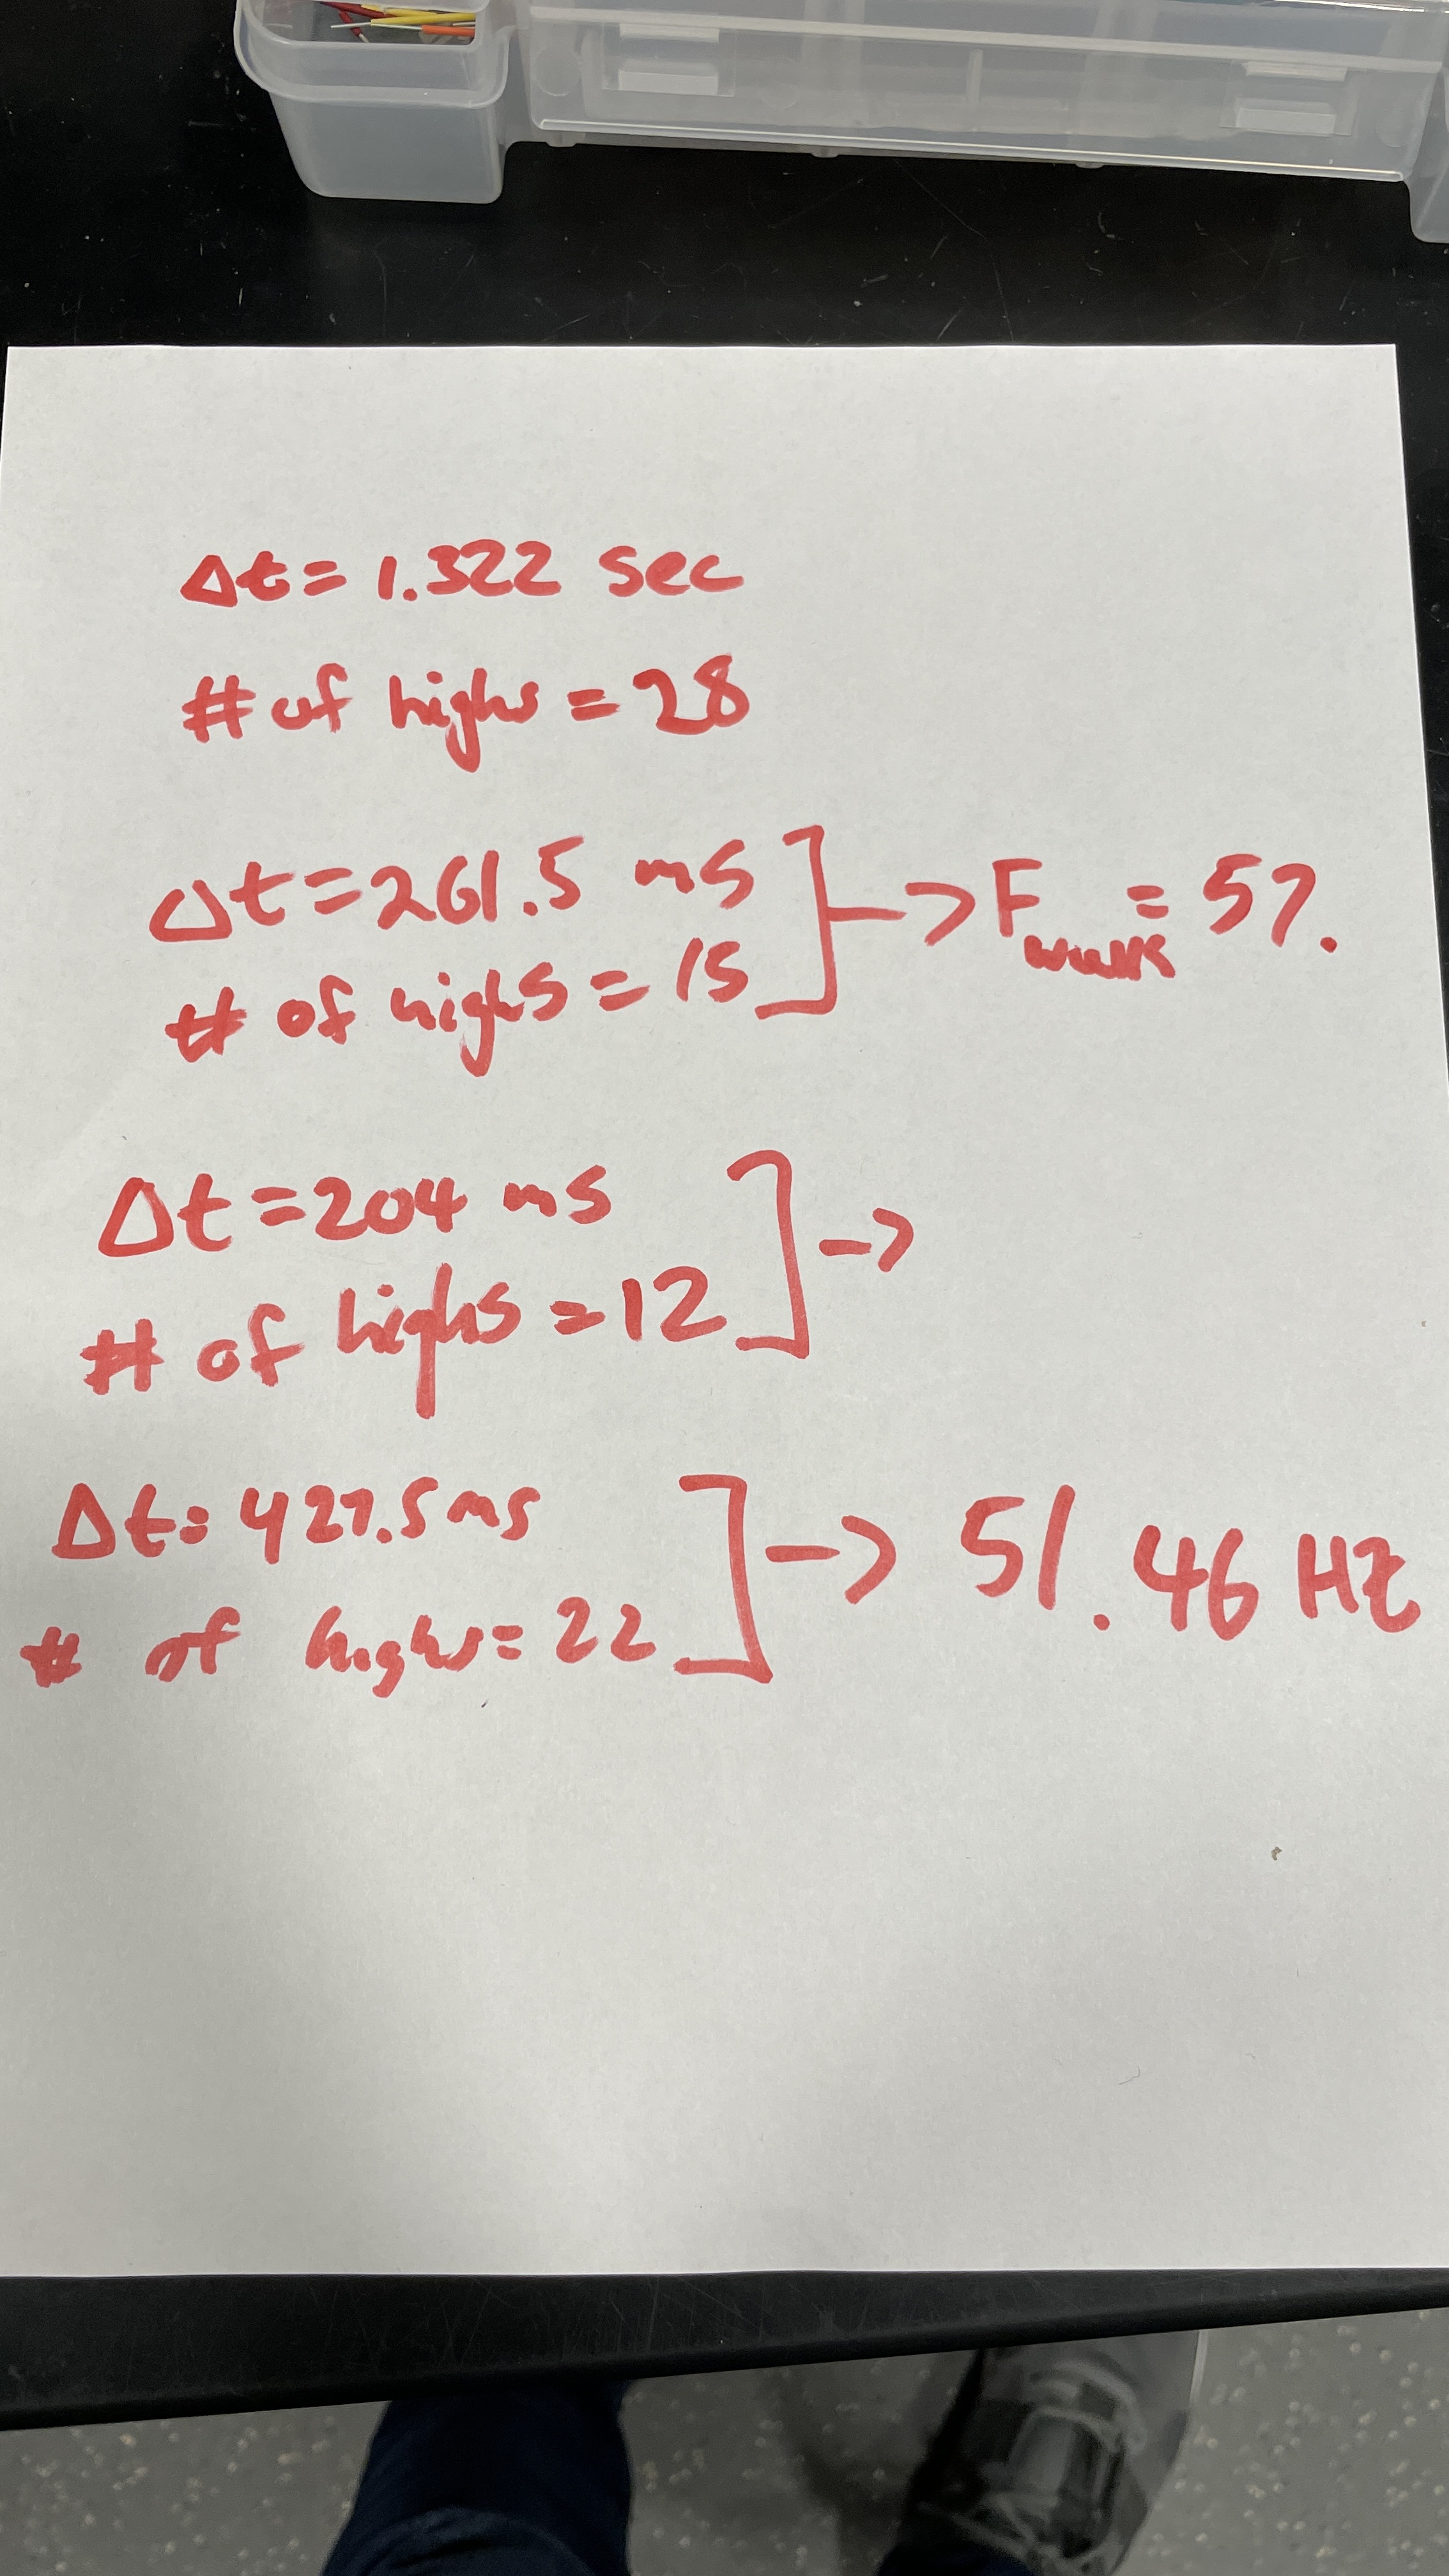 Δt = 1.322 sec
# of highs = 28
Δt = 261.5 ms
# of highs = 15
] -> F walk = 57.
Δt = 204 ms
# of highs = 12
] ->
Δt = 427.5 ms
# of highs = 22
] -> 51.46 Hz